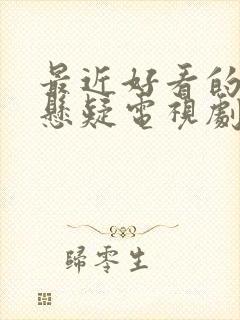 最近好看的
懸疑電視劇
歸零生